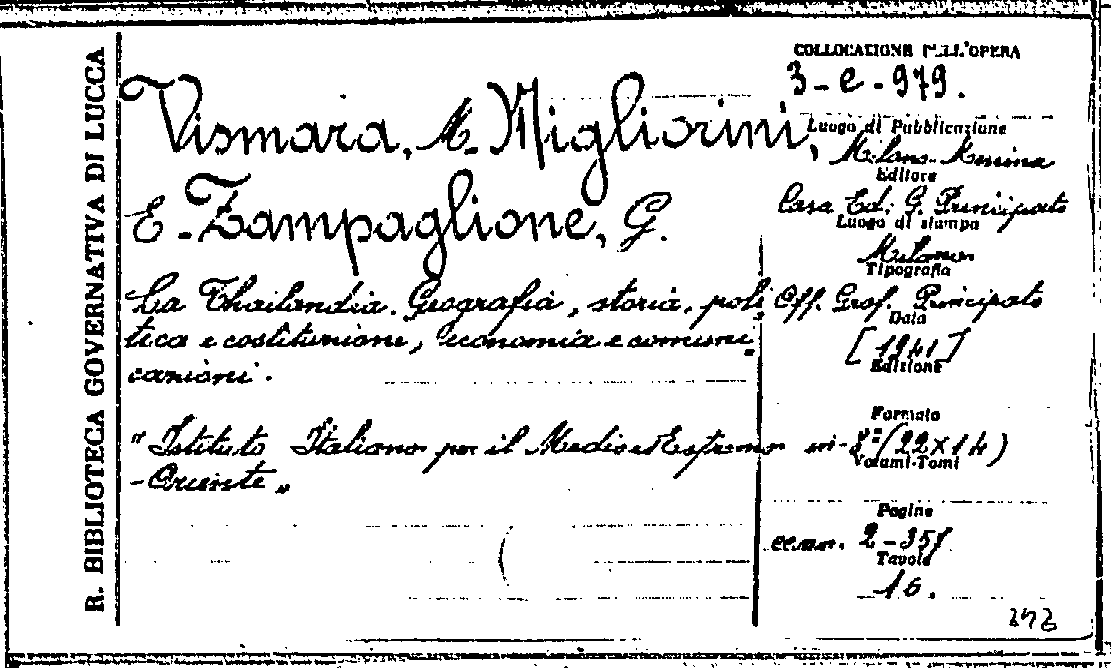 R. BIBLIOTECA GOVERNATIVA DI LUCCA
Vismara, M. Migliorini,
E. Zampaglione, G.
La Thailandia. Geografia, storia, poli
tica e costituzione, economia e comuni
cazioni.
"Istituto Italiano per il Medio ed Estremo
-Oriente"
COLLOCAZIONE DELL'OPERA
3-e-979.
Luogo di Pubblicazione
Milano-Messina
Editore
Casa Ed. G. Principato
Luogo di stampa
Milano
Tipografia
Off. Graf. Principato
Data
[1941]
Edizione
Formato
in-8º (22x14)
Volumi-Tomi
Pagine
2-357
Tavole
16.